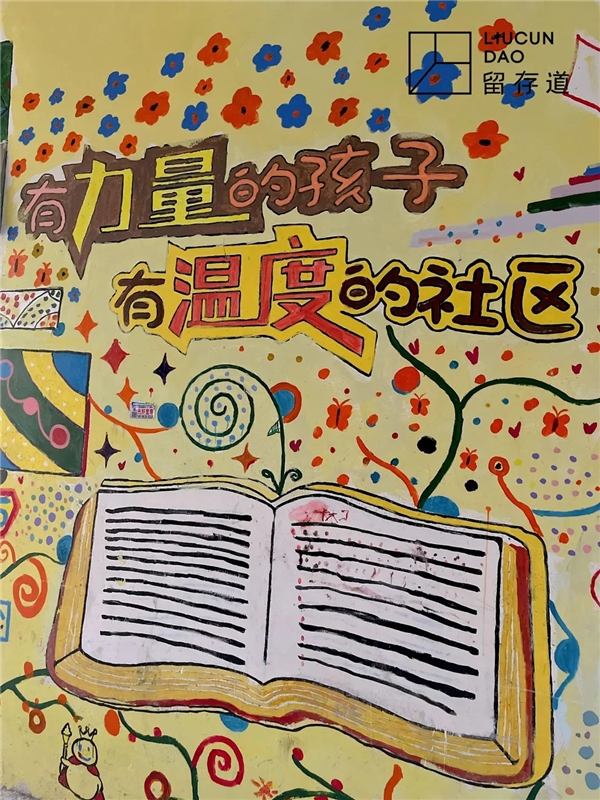 LIUCUN
DAO
留存道
有力量的孩子
有温度的社区